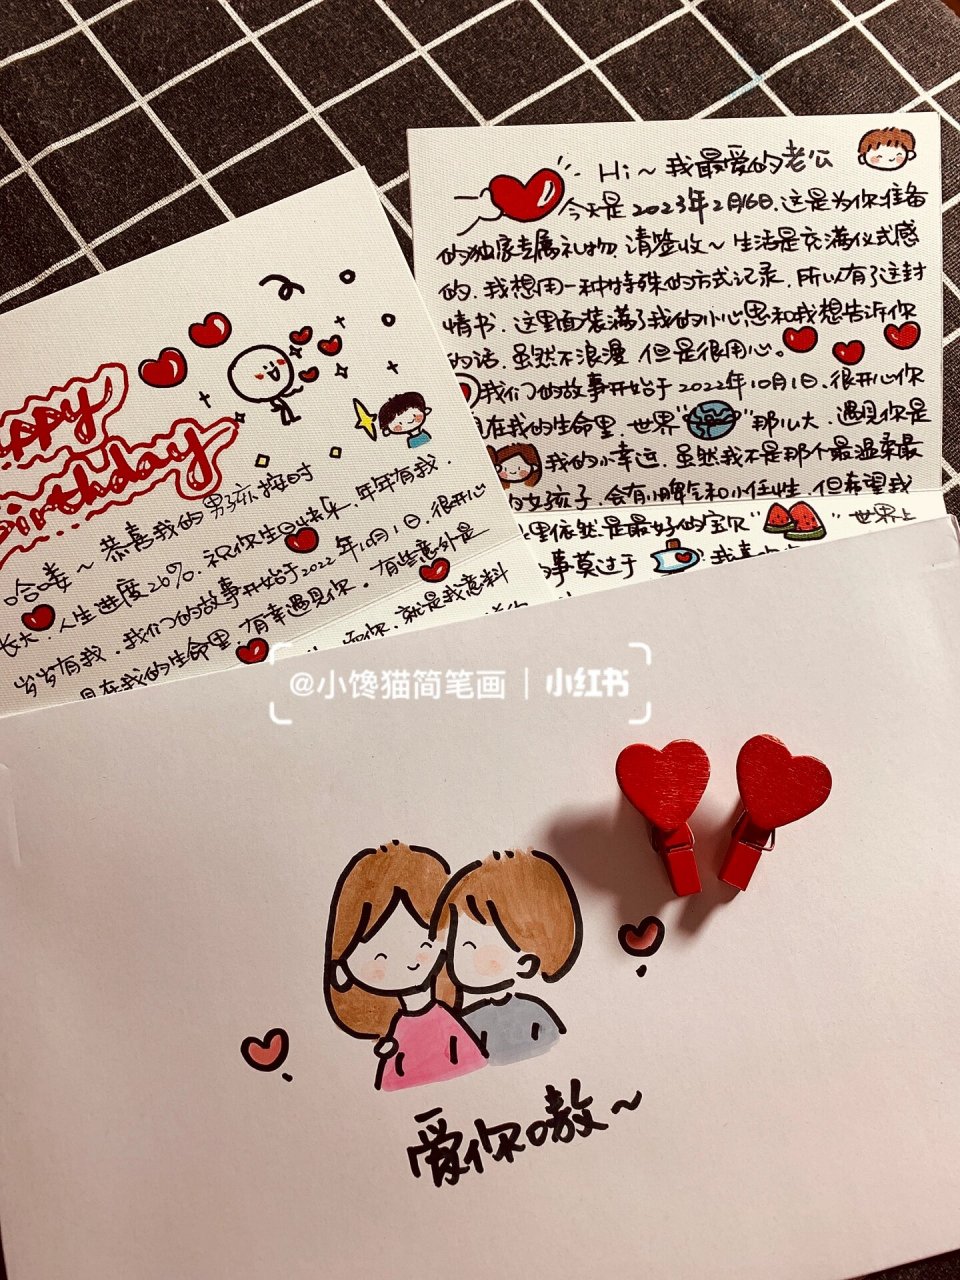 Hi~我最爱的老公
今天是2023年2月6日.这是为你准备
的独家专属礼物.请签收~生活是充满仪式感
的.我想用一种特殊的方式记录.所以有了这封
情书.这里面装满了我的小心思和我想告诉你
的话.虽然不浪漫 但是很用心。
我们的故事开始于2022年10月1日.很开心你
在我的生命里.世界“ ”那么大.遇见你是
我的小幸运.虽然我不是那个最温柔最
的女孩子.会有小脾气和小任性.但希望我
里依然是最好的宝贝“ ”世界上
事莫过于
Happy
Birthday
哈喽~恭喜我的男孩按时
长大.人生进度26%.祝你生日快乐.年年有我.
岁岁有我.我们的故事开始于2022年10月1日.很开心
在我的生命里.有幸遇见你.有些意外是
就是我意料
@小馋猫简笔画|小红书
爱你嗷~